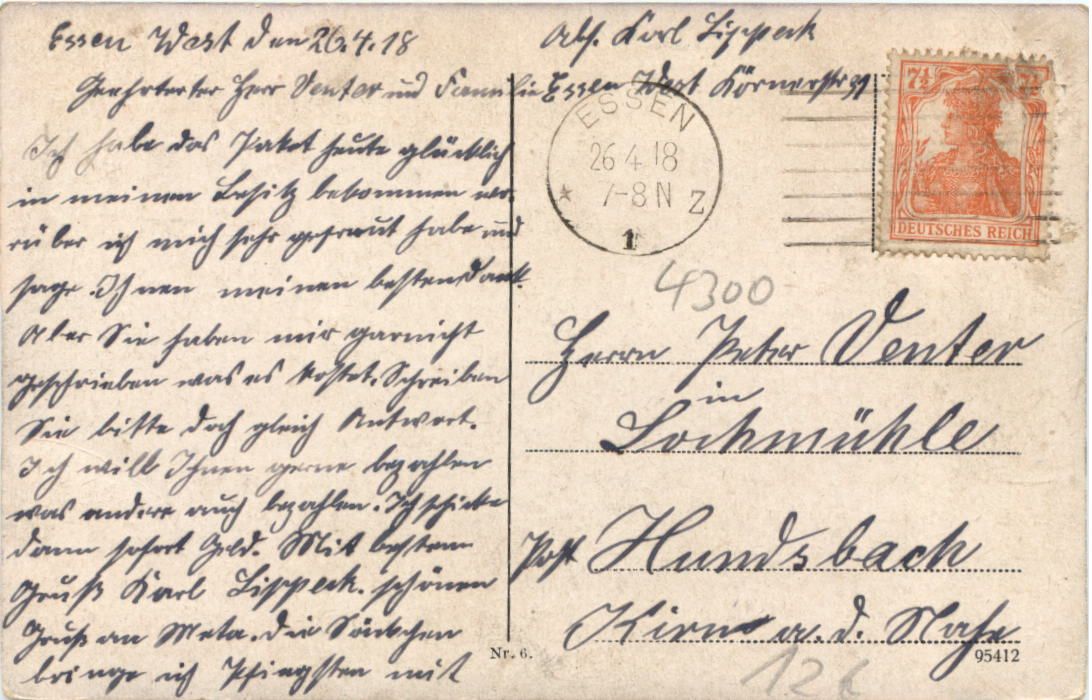 Essen West den 26.4.18
Geehrterter Herr Venter und Familie
Ich habe das Paket heute glücklich
in meinen Besitz bekommen wo-
rüber ich mich sehr gefreut habe und
sage Ihnen meinen besten Dank.
Aber Sie haben mir garnicht
geschrieben was es kostet. Schreiben
Sie bitte doch gleich Antwort.
Ich will Ihnen gerne bezahlen
was andere auch bezahlen. Ich schicke
dann sofort Geld. Mit bestem
Gruß Karl Lippeck. schönen
Gruß an Meta. die Säckchen
bringe ich Pfingsten mit
Abs. Karl Lippeck
Essen West Körnerstr 31
ESSEN
26 4 18
7-8 N
* Z
1
7½ 7½
DEUTSCHES REICH
4300
Herrn Peter Venter
in
Lochmühle
Post Hundsbach
Kirn a. d. Nahe
Nr. 6.
95412
126